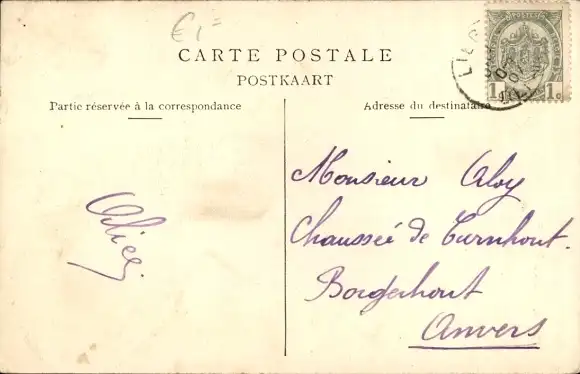 € 1=
CARTE POSTALE
POSTKAART
Partie réservée à la correspondance
Adresse du destinataire
1c 1c
Monsieur Aloy
Chaussée de Turnhout.
Borgerhout
Anvers
Alice